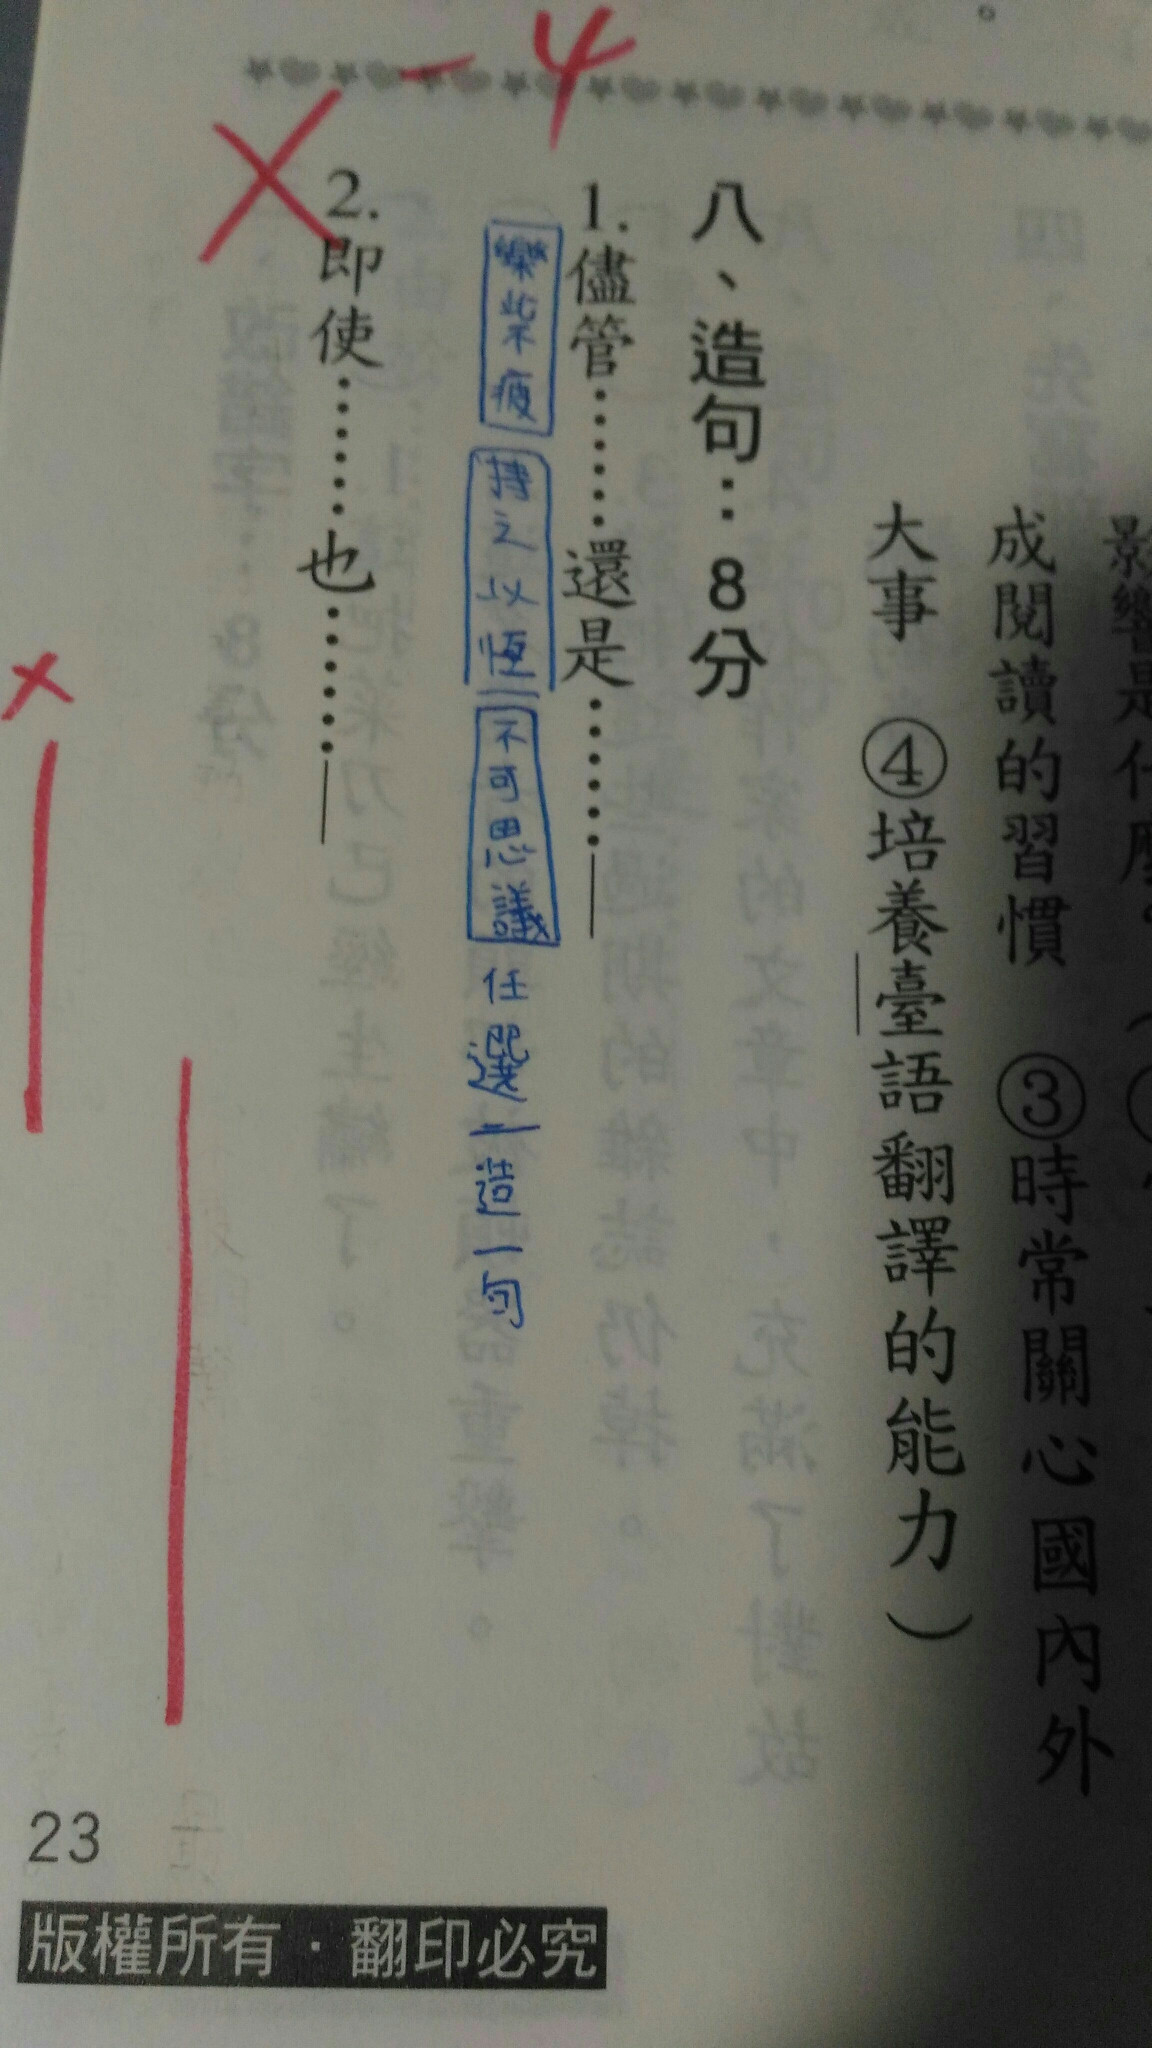 影響是什麼。
成閱讀的習慣　③時常關心國內外
大事　④培養臺語翻譯的能力）
八、造句：8分
1.儘管……還是……
樂此不疲 持之以恆 不可思議 任選一造一句
2.即使……也……
-4
23
版權所有·翻印必究